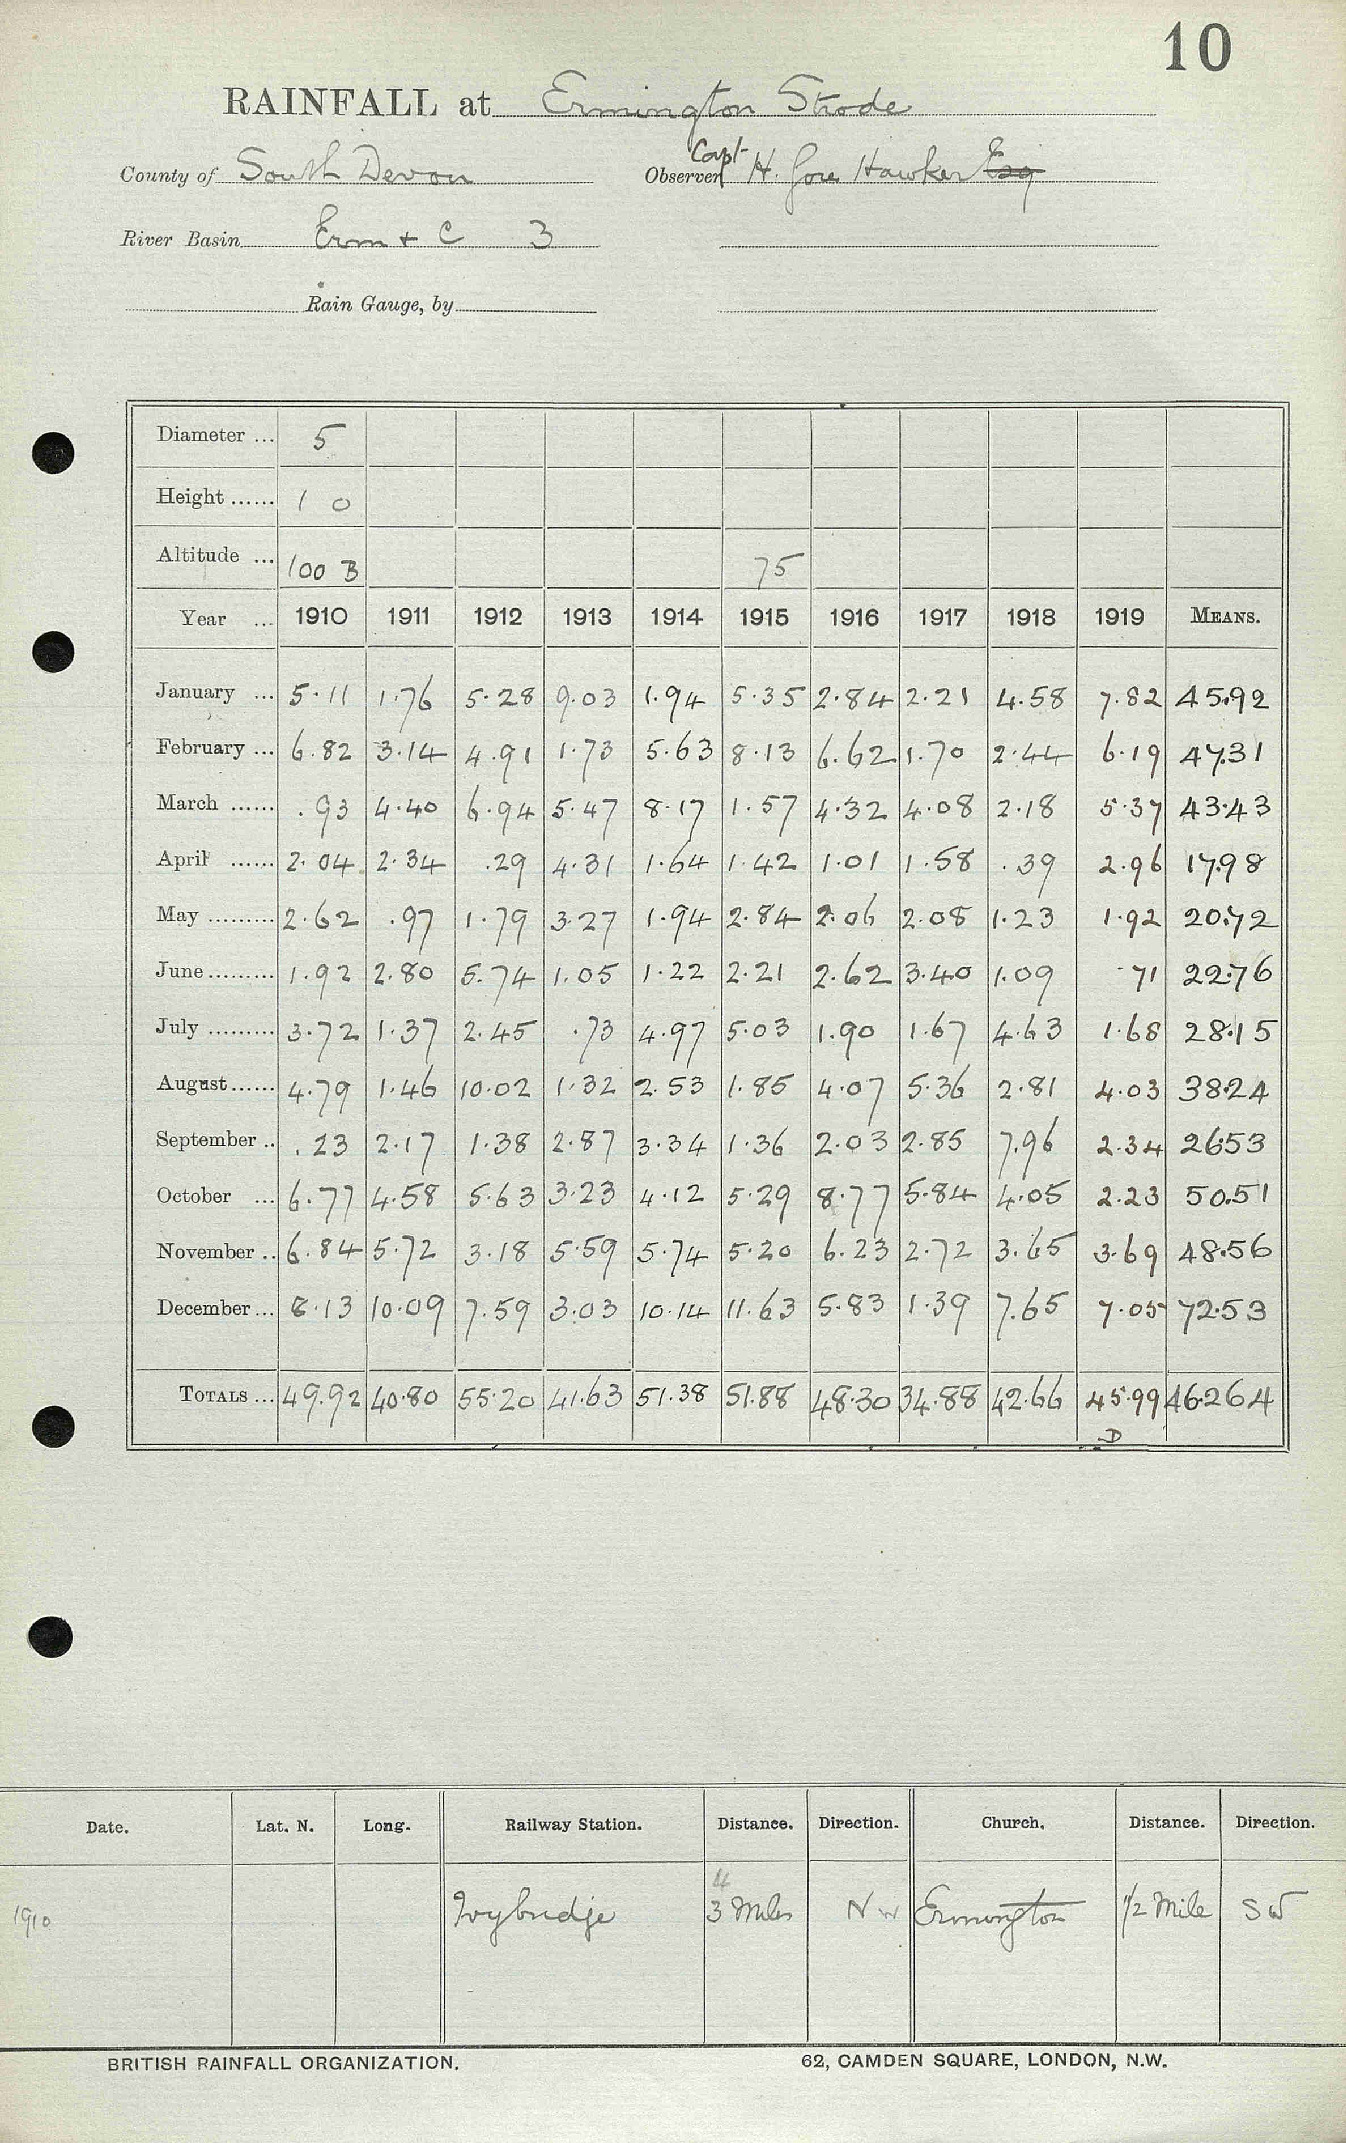 10
RAINFALL at Ermington Strode
County of South Devon Observer Capt H. Gore Hawker Esq
River Basin Erm & C 3
Rain Gauge, by
Diameter ... 5
Height ...... 1 0
Altitude ... 100 B 75
Year ... 1910 1911 1912 1913 1914 1915 1916 1917 1918 1919 MEANS.
January ... 5.11 1.76 5.28 9.03 1.94 5.35 2.84 2.21 4.58 7.82 45.92
February ... 6.82 3.14 4.91 1.73 5.63 8.13 6.62 1.70 2.44 6.19 47.31
March ...... .93 4.40 6.94 5.47 8.17 1.57 4.32 4.08 2.18 5.37 43.43
April ...... 2.04 2.34 .29 4.31 1.64 1.42 1.01 1.58 .39 2.96 17.98
May ......... 2.62 .97 1.79 3.27 1.94 2.84 2.06 2.08 1.23 1.92 20.72
June ......... 1.92 2.80 5.74 1.05 1.22 2.21 2.62 3.40 1.09 .71 22.76
July ......... 3.72 1.37 2.45 .73 4.97 5.03 1.90 1.67 4.63 1.68 28.15
August ...... 4.79 1.46 10.02 1.32 2.53 1.85 4.07 5.36 2.81 4.03 38.24
September .. .23 2.17 1.38 2.87 3.34 1.36 2.03 2.85 7.96 2.34 26.53
October ... 6.77 4.58 5.63 3.23 4.12 5.29 8.77 5.84 4.05 2.23 50.51
November .. 6.84 5.72 3.18 5.59 5.74 5.20 6.23 2.72 3.65 3.69 48.56
December ... 8.13 10.09 7.59 3.03 10.14 11.63 5.83 1.39 7.65 7.05 72.53
TOTALS ... 49.92 40.80 55.20 41.63 51.38 51.88 48.30 34.88 42.66 45.99 462.64
D
Date. Lat. N. Long. Railway Station. Distance. Direction. Church. Distance. Direction.
4
1910 Ivybridge 3 Miles NW Ermington 1/2 Mile SW
BRITISH RAINFALL ORGANIZATION. 62, CAMDEN SQUARE, LONDON, N.W.